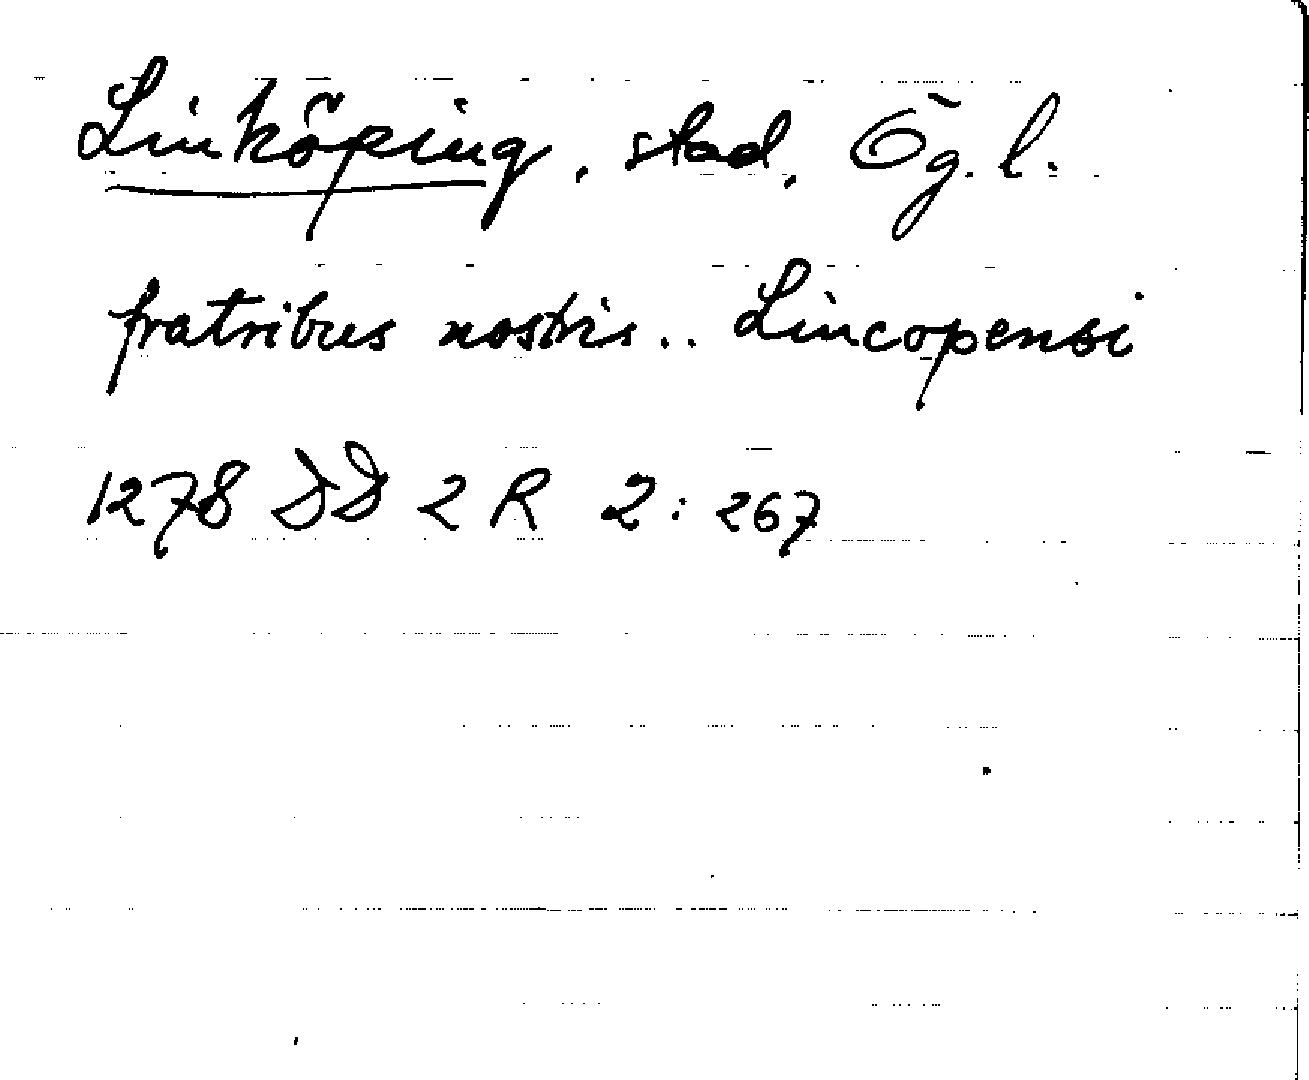 Linköping, stad, Ög. l.
fratribus nostris.. Lincopensi
1278 DD 2 R 2: 267